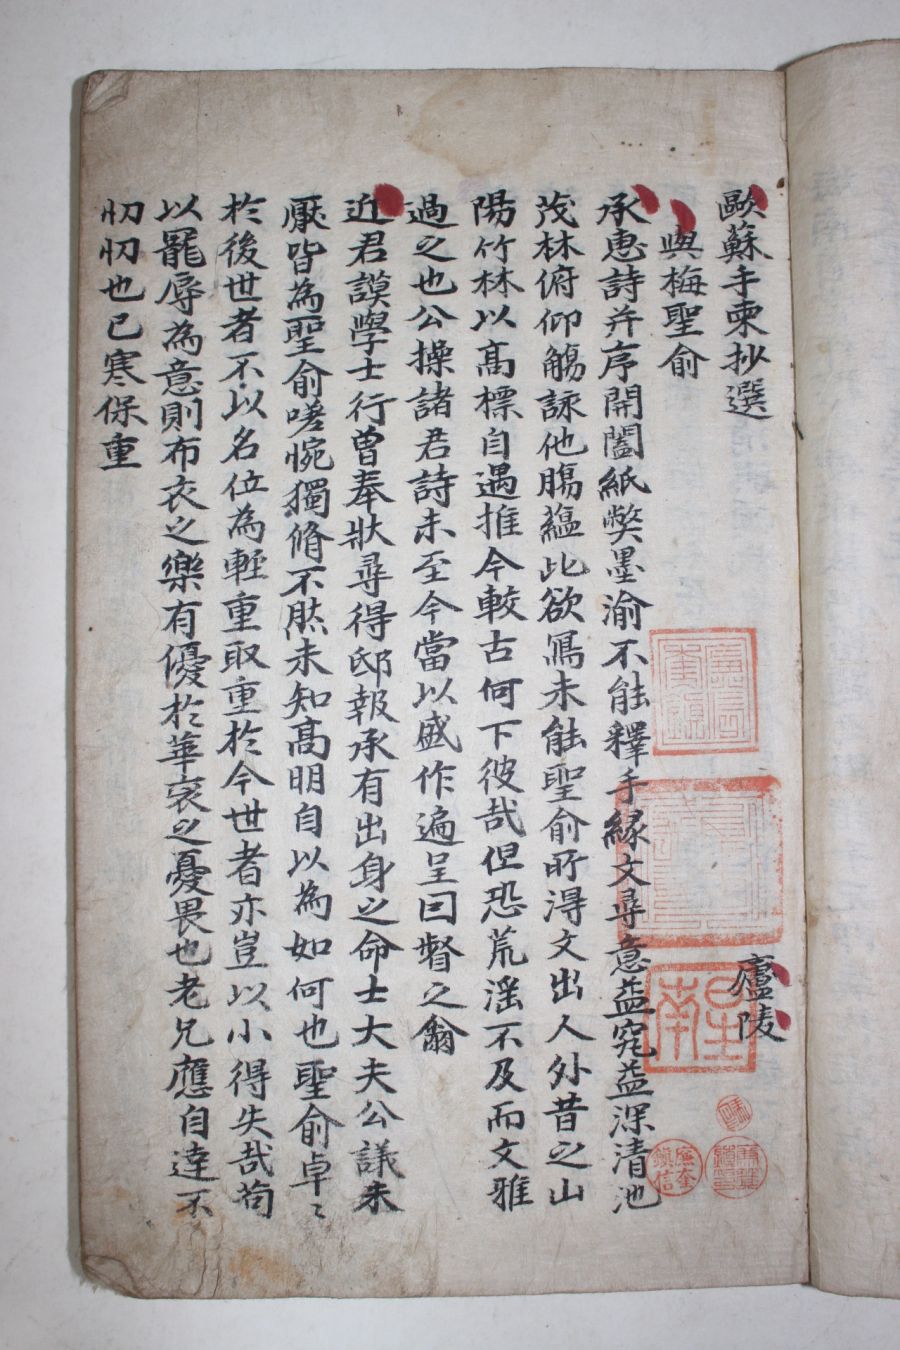 歐蘇手柬抄選
廬陵
與梅聖俞
承惠詩并序開闔紙弊墨渝不能釋手緣文尋意益究益深清池
茂林俯仰觴詠他腸蘊比欲寫未能聖俞所淂文出人外昔之山
陽竹林以高標自遇推今較古何下彼哉但恐荒淫不及而文雅
過之也公操諸君詩未至今當以盛作遍呈因督之爾
近君謨學士行曾奉狀尋得邸報承有出身之命士大夫公議未
厭皆為聖俞嗟惋獨脩不然未知高明自以為如何也聖俞卓〻
於後世者不以名位為輕重取重於今世者亦豈以小得失哉苟
以寵辱為意則布衣之樂有優於華衮之憂畏也老兄應自達不
忉忉也已寒保重
星南